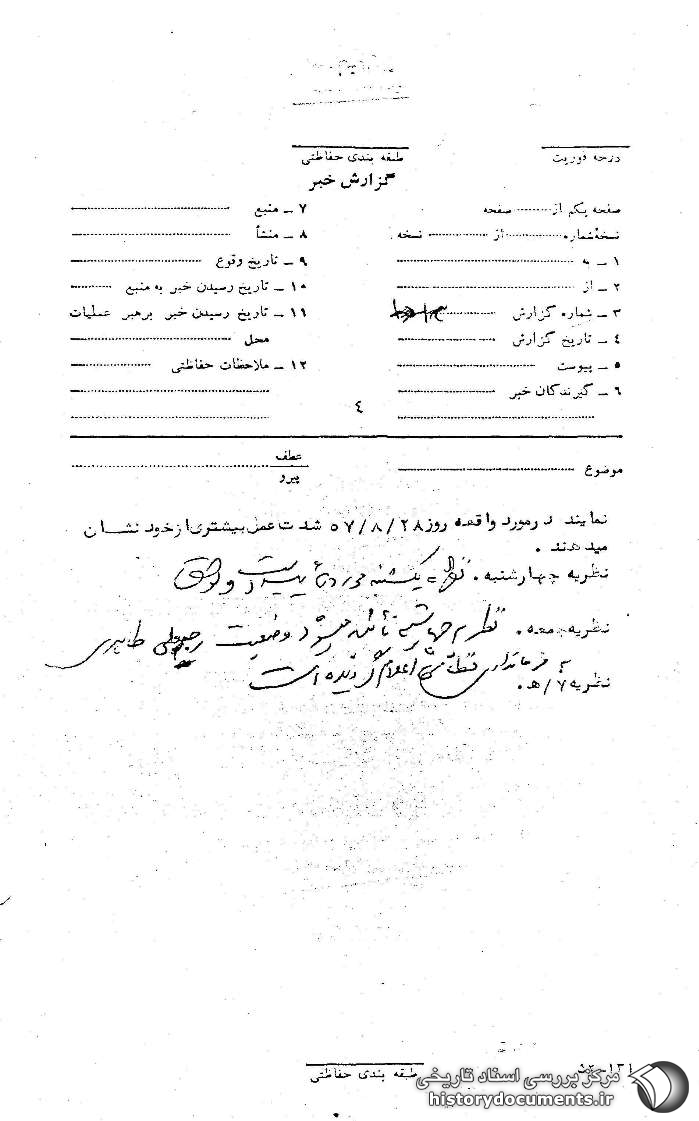 درجه فوریت
طبقه بندی حفاظتی
گزارش خبر
صفحه یکم از ............ صفحه
نسخه شماره ............ از ............ نسخه
۱ ـ به
۲ ـ از
۳ ـ شماره گزارش
۴ ـ تاریخ گزارش
۵ ـ پیوست
۶ ـ گیرندگان خبر
۷ ـ منبع
۸ ـ منشأ
۹ ـ تاریخ وقوع
۱۰ ـ تاریخ رسیدن خبر به منبع
۱۱ ـ تاریخ رسیدن خبر برهبر عملیات
محل
۱۲ ـ ملاحظات حفاظتی
٤
موضوع
عطف
پیرو
نمایند درمورد واقعه روز ۵۷/۸/۲۸ شدت عمل بیشتری ازخود نشان
میدهند .
نظریه چهارشنبه . نظریه یکشنبه مورد تأیید است
نظریه جمعه . نظریه چهارشنبه تأیید میشود وضعیت رجبعلی طاهری
به فرمانداری نظامی اعلام گردیده است
نظریه ۷/ه .
طبقه بندی حفاظتی
مرکز بررسی اسناد تاریخی
historydocuments.ir